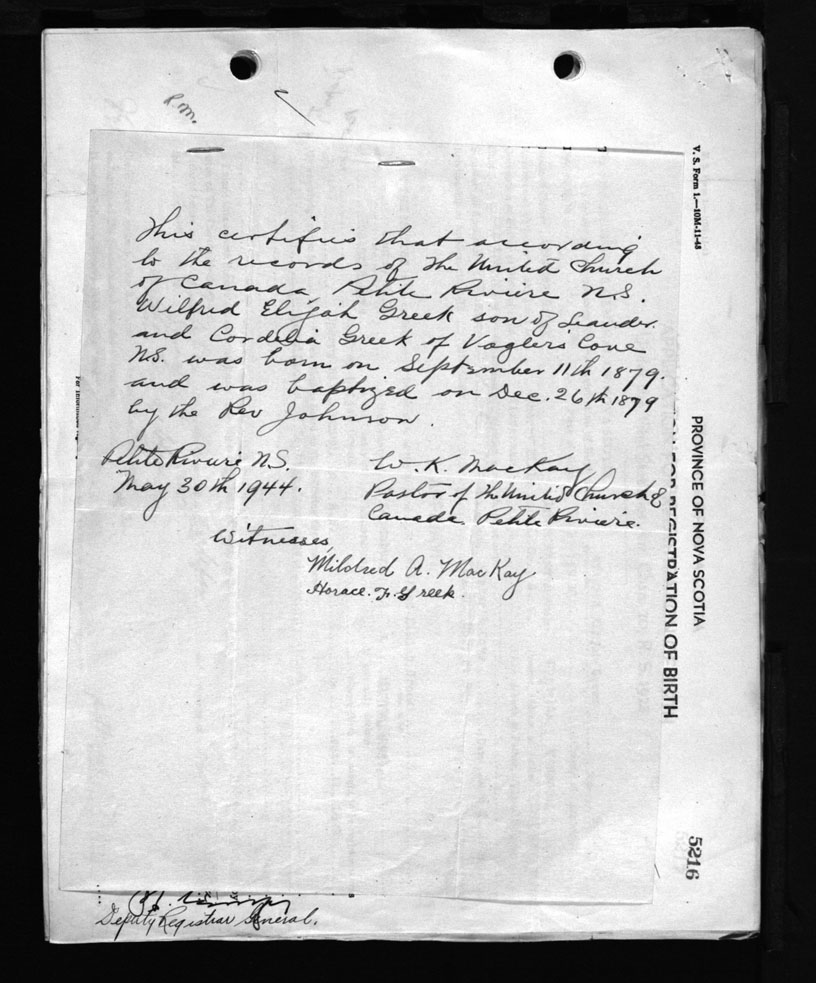 P.M.
This certifies that according
to the records of the United Church
of Canada, Petite Riviere N.S.
Wilfred Elijah Greek son of Leander
and Cordelia Greek of Voglers Cove
N.S. was born on September 11th 1879.
and was baptized on Dec. 26th 1879
by the Rev Johnson.
Petite Riviere N.S.
May 30th 1944.
W. K. MacKay
Pastor of the United Church of
Canada Petite Riviere.
Witnesses
Mildred A. MacKay
Horace. F. Greek.
Deputy Registrar General.
V. S. Form 1.—10M-11-43
PROVINCE OF NOVA SCOTIA
FOR REGISTRATION OF BIRTH
5216